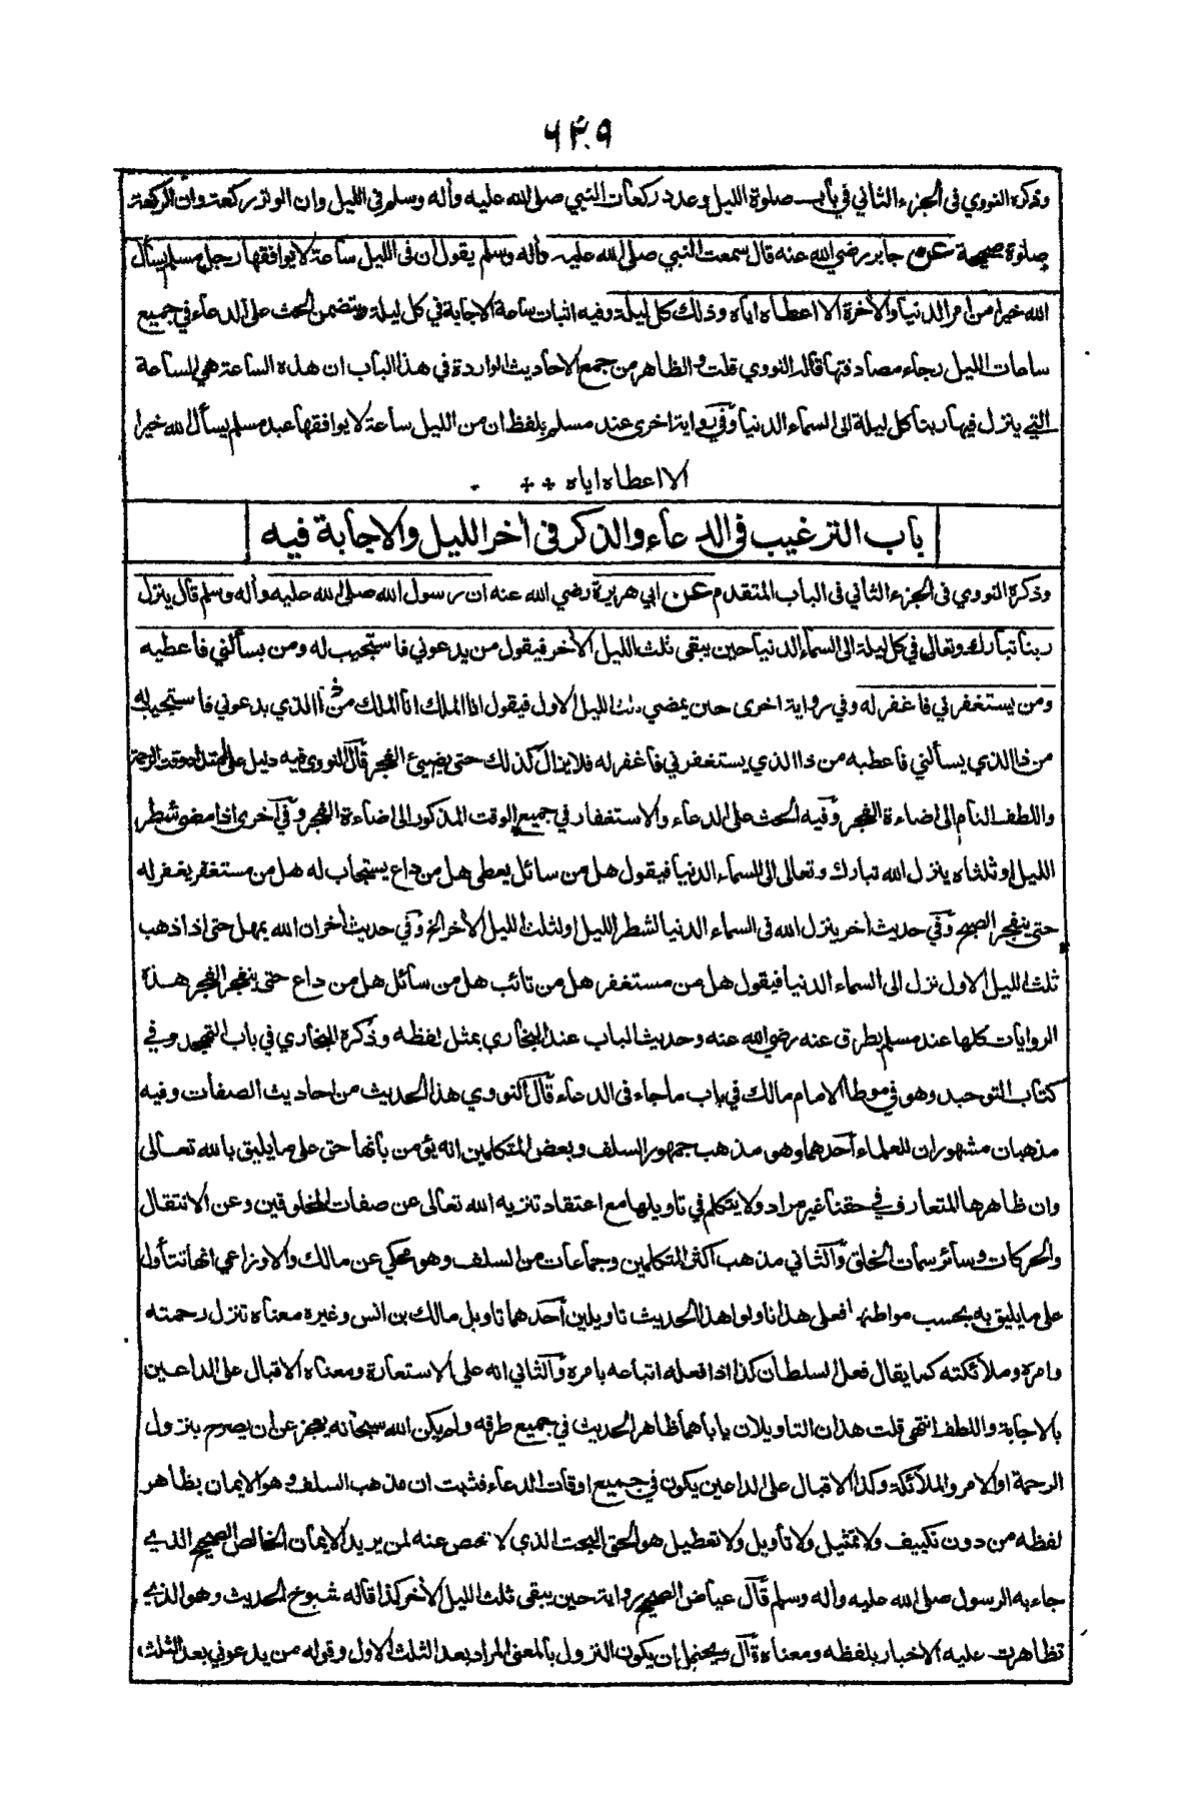 ٦٣٠٩
وذكره النووي فى الجزء الثاني في باب صلوة الليل وعدد ركعات النبي صلى الله عليه وأله وسلم فى الليل وان الوتر ركعة وان الركعة
صلوة صحيحة عن جابر رضي الله عنه قال سمعت النبي صلى الله عليه وأله وسلم يقول ان فى الليل ساعة لا يوافقها رجل مسلم يسأل
الله خيرا من امر الدنيا والأخرة الا اعطاه اياه وذلك كل ليلة وفيه اثبات ساعة الاجابة في كل ليلة ويتضمن الحث على الدعاء في جميع
ساعات الليل رجاء مصادفتها قاله النووي قلت والظاهر من جمع الاحاديث الواردة في هذا الباب ان هذه الساعة هي الساعة
التي ينزل فيها ربنا كل ليلة الى السماء الدنيا وفي رواية اخرى عند مسلم بلفظ ان من الليل ساعة لا يوافقها عبد مسلم يسأل الله خيرا
الا اعطاه اياه
باب الترغيب فى الدعاء والذكر فى أخر الليل والاجابة فيه
وذكره النووي فى الجزء الثاني فى الباب المتقدم عن ابي هريرة رضي الله عنه ان رسول الله صلى الله عليه وأله وسلم قال ينزل
ربنا تبارك وتعالى في كل ليلة الى السماء الدنيا حين يبقى ثلث الليل الأخر فيقول من يدعوني فاستجيب له ومن يسألني فاعطيه
ومن يستغفرني فاغفر له وفي رواية اخرى حين يمضي ثلث الليل الاول فيقول انا الملك انا الملك من ذا الذي يدعوني فاستجيب له
من ذا الذي يسألني فاعطيه من ذا الذي يستغفرني فاغفر له فلا يزال كذلك حتى يضيئ الفجر قال النووي فيه دليل على امتداد وقت الرحمة
واللطف التام الى اضاءة الفجر وفيه الحث على الدعاء والاستغفار في جميع الوقت المذكور الى اضاءة الفجر وفي أخرى اذا مضى شطر
الليل او ثلثاه ينزل الله تبارك وتعالى الى السماء الدنيا فيقول هل من سائل يعطى هل من داع يستجاب له هل من مستغفر يغفر له
حتى ينفجر الصبح وفي حديث أخر ينزل الله فى السماء الدنيا لشطر الليل او لثلث الليل الأخر الخ وفي حديث أخر ان الله يمهل حتى اذا ذهب
ثلث الليل الاول نزل الى السماء الدنيا فيقول هل من مستغفر هل من تائب هل من سائل هل من داع حتى ينفجر الفجر هذه
الروايات كلها عند مسلم بطرق عنه رضي الله عنه وحديث الباب عند البخاري بمثل لفظه وذكره البخاري في باب التهجد وفي
كتاب التوحيد وهو في موطأ الامام مالك في باب ما جاء فى الدعاء قال النووي هذا الحديث من احاديث الصفات وفيه
مذهبان مشهوران للعلماء أحدهما وهو مذهب جمهور السلف وبعض المتكلمين انه يؤمن بأنها حق على ما يليق بالله تعالى
وان ظاهرها المتعارف في حقنا غير مراد ولا يتكلم في تاويلها مع اعتقاد تنزيه الله تعالى عن صفات المخلوقين وعن الانتقال
والحركات وسائر سمات الخلق والثاني مذهب اكثر المتكلمين وجماعات من السلف وهو محكي عن مالك والاوزاعي انها تتأول
على ما يليق به بحسب مواطنها فعلى هذا تاولوا هذا الحديث تاويلين أحدهما تاويل مالك بن انس وغيره معناه تنزل رحمته
وامره وملائكته كما يقال فعل السلطان كذا اذا فعله اتباعه بامره والثاني انه على الاستعارة ومعناه الاقبال على الداعين
بالاجابة واللطف انتهى قلت هذان التاويلان ياباهما ظاهر الحديث في جميع طرقه ولم يكن الله سبحانه يعجز عن ان يصرح بنزول
الرحمة او الامر والملائكة وكذا الاقبال على الداعين يكون في جميع اوقات الدعاء فثبت ان مذهب السلف وهو الايمان بظاهر
لفظه من دون تكييف ولا تمثيل ولا تأويل ولا تعطيل هو الحق البحت الذي لا محص عنه لمن يريد الايمان الخالص الصحيح الذي
جاء به الرسول صلى الله عليه وأله وسلم قال عياض الصحيح رواية حين يبقى ثلث الليل الأخر كذا قاله شيوخ الحديث وهو الذي
تظاهرت عليه الاخبار بلفظه ومعناه قال ويحتمل ان يكون النزول بالمعنى المراد بعد الثلث الاول وقوله من يدعوني بعد الثلث